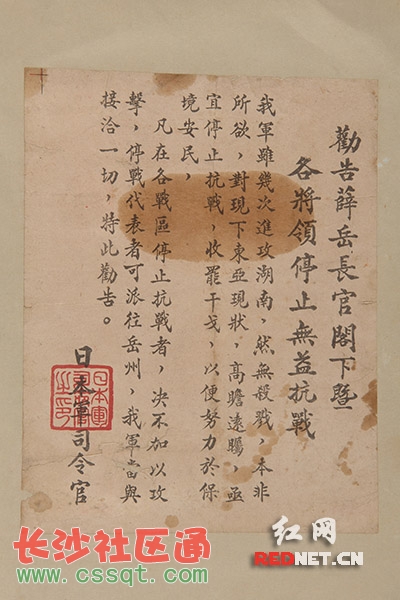 勸告薛岳長官閣下暨
各將領停止無益抗戰
我軍雖幾次進攻湖南，然無殺戮，本非
所欲，對現下東亞現狀，高瞻遠矚，亟
宜停止抗戰，收罷干戈，以便努力於保
境安民，
凡在各戰區停止抗戰者，決不加以攻
擊，停戰代表者可派往岳州，我軍當與
接洽一切，特此勸告。
日本軍司令官
日本軍
之印
红网
REDNET.CN
长沙社区通
www.cssqt.com